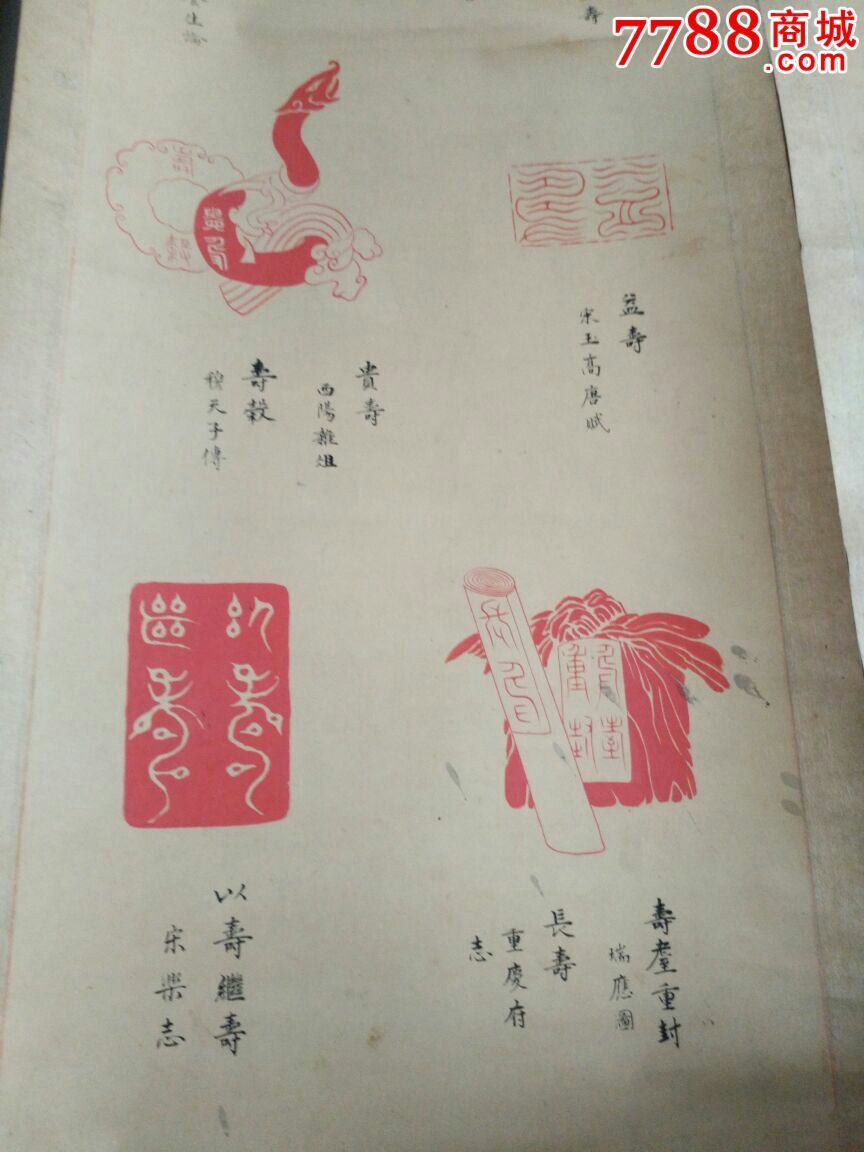 7788商城
.com
壽
生論
益壽
宋玉高唐賦
貴壽
酉陽雜俎
壽穀
穆天子傳
壽耋重封
瑞應圖
長壽
重慶府
志
以壽繼壽
宋樂志